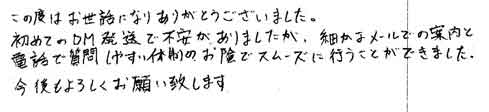 この度はお世話になりありがとうございました。
初めてのDM発送で不安がありましたが、細かなメールでの案内と
電話で質問しやすい体制のお陰でスムーズに行うことができました。
今後もよろしくお願い致します